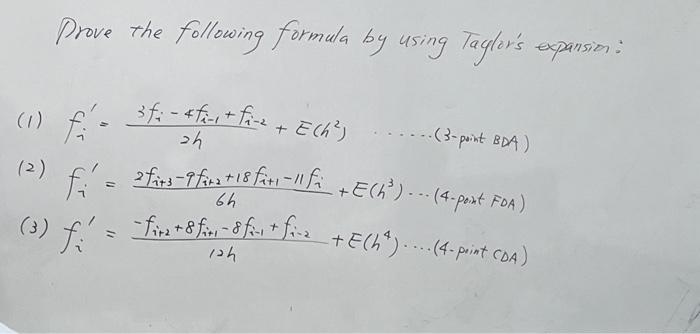 Prove the following formula by using Taylor's expansion:
(1) f_i' = (3f_i - 4f_{i-1} + f_{i-2}) / 2h + E(h²) ......(3-point BDA)
(2) f_i' = (2f_{i+3} - 9f_{i+2} + 18f_{i+1} - 11f_i) / 6h + E(h³) ...(4-point FDA)
(3) f_i' = (-f_{i+2} + 8f_{i+1} - 8f_{i-1} + f_{i-2}) / 12h + E(h⁴) ....(4-point CDA)